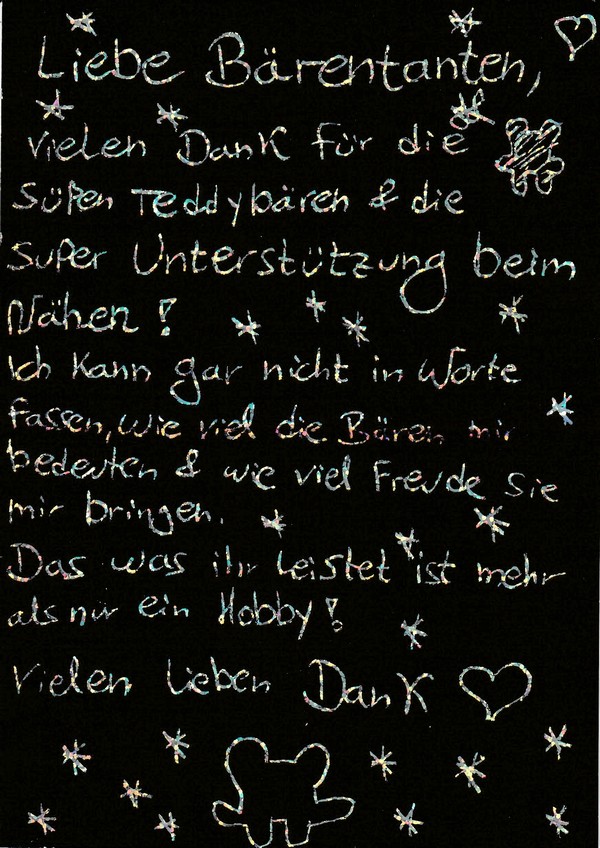 Liebe Bärentanten,
vielen Dank für die
süßen Teddybären & die
super Unterstützung beim
Nähen!
Ich kann gar nicht in Worte
fassen, wie viel die Bären mir
bedeuten & wie viel Freude sie
mir bringen.
Das was ihr leistet ist mehr
als nur ein Hobby!
Vielen lieben Dank